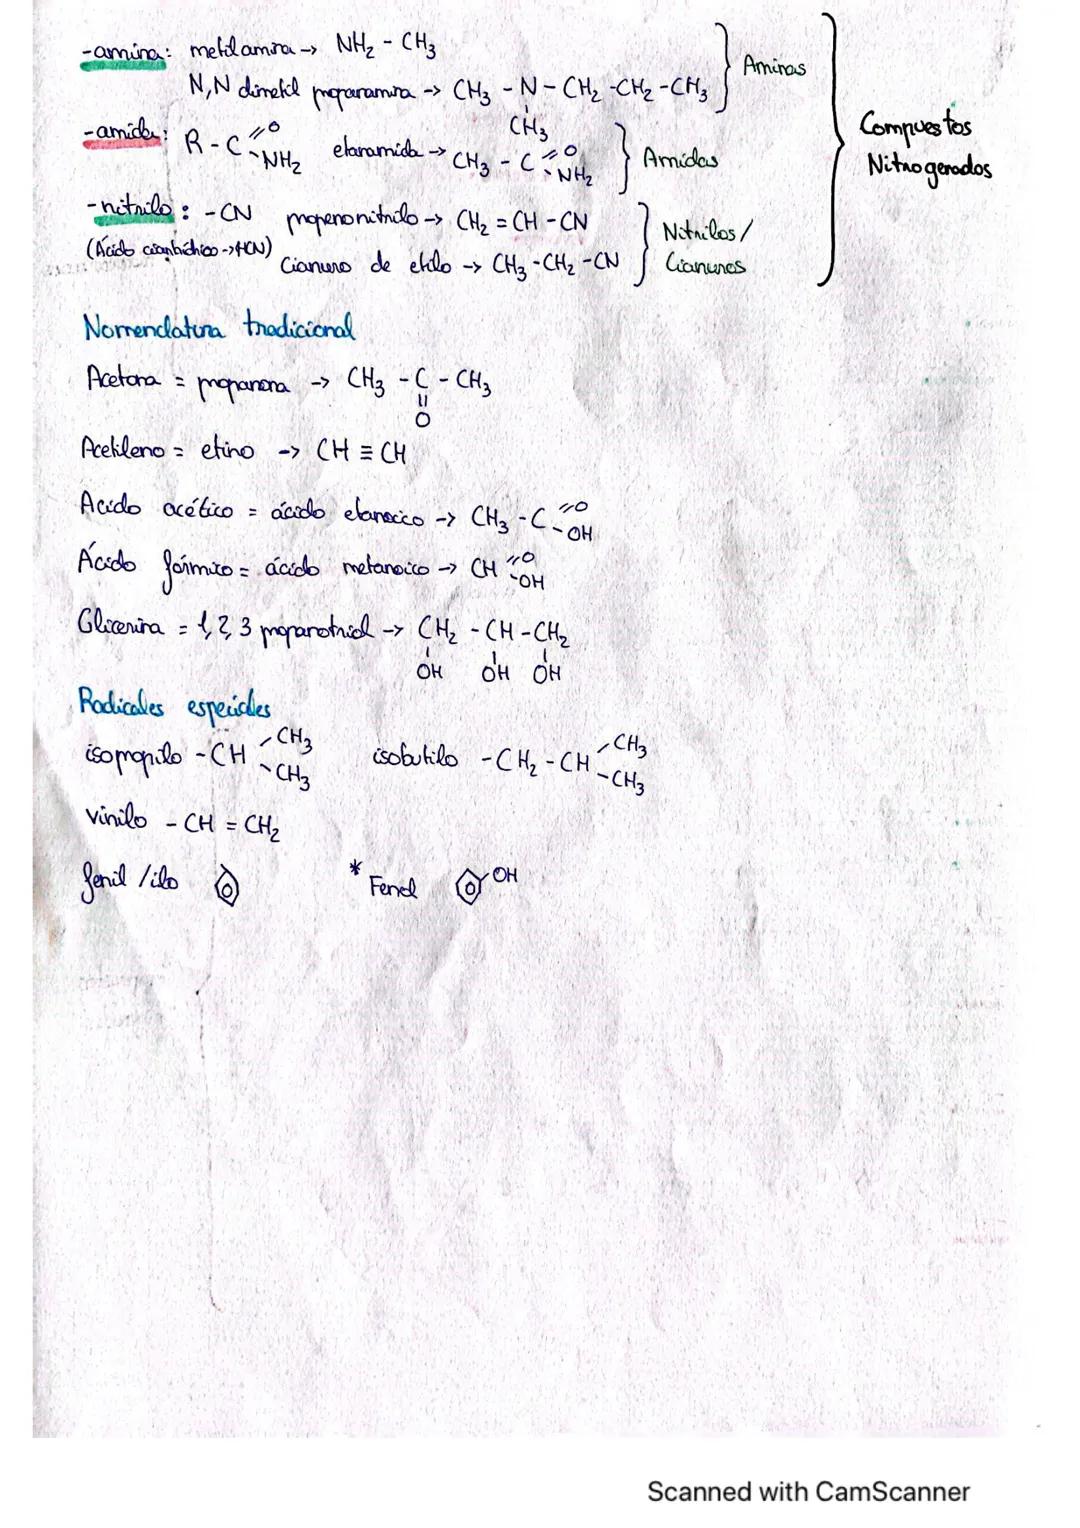 -amina: metilamina -> NH₂ - CH₃
N,N dimetil propanamina -> CH₃ - N - CH₂ - CH₂ - CH₃
CH₃
Aminas
-amida: R - C =O - NH₂ etanamida -> CH₃ - C =O - NH₂
Amidas
-nitrilo: -CN propenonitrilo -> CH₂ = CH - CN
(Ácido cianhídrico -> HCN)
Cianuro de etilo -> CH₃ - CH₂ - CN
Nitrilos/
Cianuros
Compuestos
Nitrogenados
Nomenclatura tradicional
Acetona = propanona -> CH₃ - C - CH₃
||
O
Acetileno = etino -> CH ≡ CH
Acido acético = ácido etanoico -> CH₃ - C =O - OH
Ácido fórmico = ácido metanoico -> CH =O - OH
Glicerina = 1,2,3 propanotriol -> CH₂ - CH - CH₂
OH OH OH
Radicales especiales
isopropilo - CH - CH₃ - CH₃ isobutilo - CH₂ - CH - CH₃ - CH₃
vinilo - CH = CH₂
fenil /ilo * Fenol OH
Scanned with CamScanner